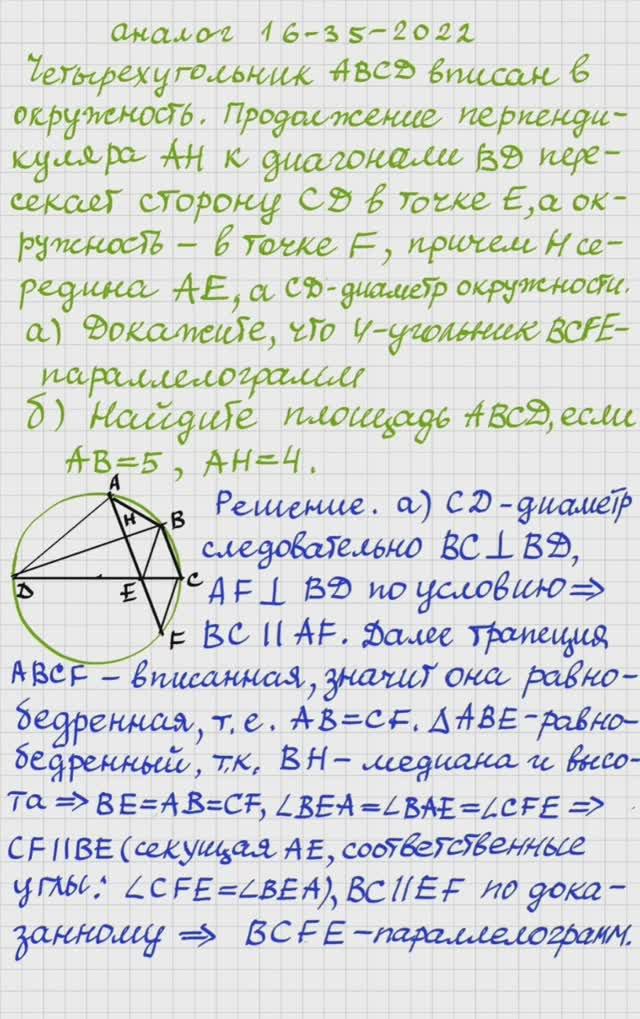 аналог 16-35-2022
Четырехугольник ABCD вписан в
окружность. Продолжение перпенди-
куляра AH к диагонали BD пере-
секает сторону CD в точке E, а ок-
ружность – в точке F, причем H се-
редина AE, а CD-диаметр окружности.
а) Докажите, что 4-угольник BCFE-
параллелограмм
б) Найдите площадь ABCD, если
AB=5, AH=4.
A
H
B
D
E
C
F
Решение. а) CD-диаметр
следовательно BC⊥BD,
AF⊥ BD по условию ⇒
BC ∥ AF. Далее трапеция
ABCF – вписанная, значит она равно-
бедренная, т.е. AB=CF. ΔABE-равно-
бедренный, т.к. BH – медиана и высо-
та ⇒ BE=AB=CF, ∠BEA=∠BAE=∠CFE ⇒
CF∥BE (секущая AE, соответственные
углы: ∠CFE=∠BEA), BC∥EF по дока-
занному ⇒ BCFE-параллелограмм.